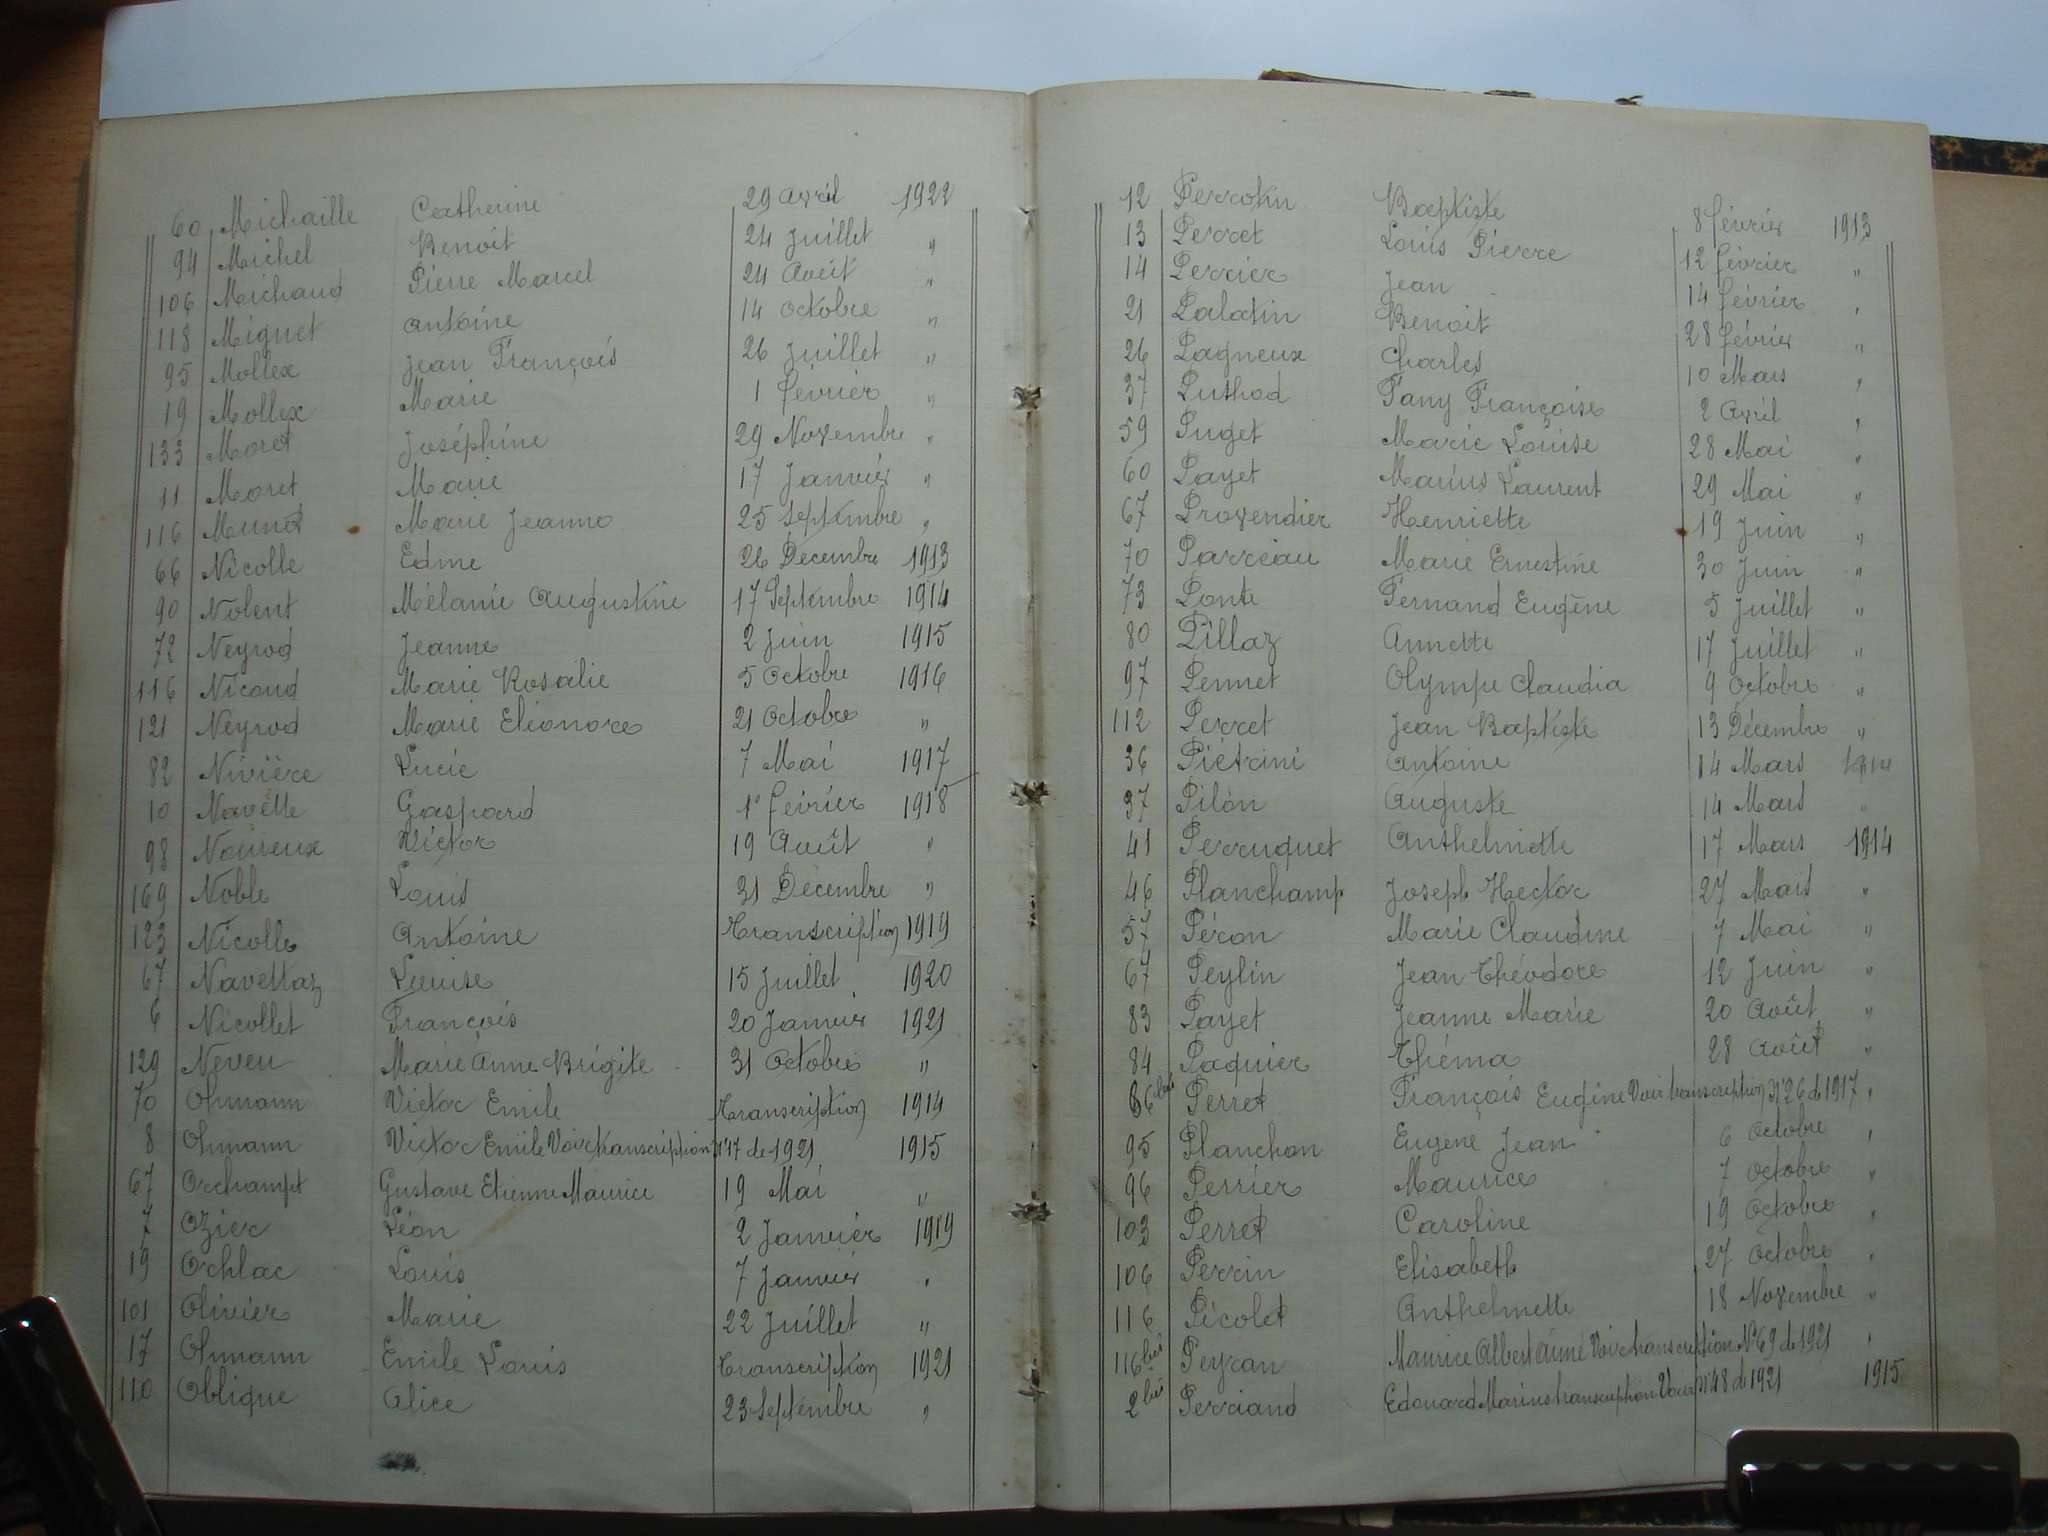 60 Michaille Catherine 29 Avril 1922
94 Michel Benoit 24 Juillet "
106 Michaud Pierre Marcel 24 Août "
118 Miguet Antoine 14 Octobre "
95 Mollex Jean François 26 Juillet "
19 Mollex Marie 1 Février "
133 Moret Joséphine 29 Novembre "
11 Moret Marie 17 Janvier "
116 Munet Marie Jeanne 25 Septembre "
66 Nicolle Edme 26 Décembre 1913
90 Nolent Mélanie Augustine 17 Septembre 1914
72 Neyrod Jeanne 2 Juin 1915
116 Nicoud Marie Rosalie 5 Octobre 1916
121 Neyrod Marie Eléonore 21 Octobre "
82 Nivière Lucie 7 Mai 1917
10 Navette Gaspard 1er Février 1918
98 Noireux Victor 19 Août "
169 Noble Louis 31 Décembre "
123 Nicolle Antoine Transcription 1919
67 Navettaz Louise 15 Juillet 1920
6 Nicollet François 20 Janvier 1921
129 Neveu Marie Anne Brigite 31 Octobre "
70 Ohmann Victor Emile Transcription 1914
8 Ohmann Victor Emile Voir transcription N°17 de 1921 1915
67 Orchampt Gustave Etienne Maurice 19 Mai "
7 Ozier Léon 2 Janvier 1919
19 Ochlac Louis 7 Janvier "
101 Olivier Marie 22 Juillet "
17 Ohmann Emile Louis Transcription 1921
110 Oblique Alice 23 Septembre "
12 Perrotin Baptiste 8 février 1913
13 Perret Louis Pierre 12 février "
14 Perrier Jean 14 février "
21 Palatin Benoit 28 février "
26 Pagneux Charles 10 Mars "
37 Puthod Fany Françoise 2 Avril "
59 Puget Marie Louise 28 Mai "
60 Payet Marius Laurent 29 Mai "
67 Provendier Henriette 19 Juin "
70 Parreau Marie Ernestine 30 Juin "
73 Ponte Fernand Eugène 5 Juillet "
80 Pillaz Annette 17 Juillet "
97 Pennet Olympe Claudia 9 Octobre "
112 Perret Jean Baptiste 13 Décembre "
36 Piétrini Antoine 14 Mars 1914
37 Pilon Auguste 14 Mars "
41 Perruquet Anthelmette 17 Mars 1914
46 Planchamp Joseph Hector 27 Mars "
57 Péron Marie Claudine 7 Mai "
67 Peylin Jean Théodore 12 Juin "
83 Payet Jeanne Marie 20 Août "
84 Paquier Théma 28 Août "
86 bis Perret François Eugène Voir transcription N°26 de 1917 "
95 Planchon Eugène Jean 6 Octobre "
96 Perrier Maurice 7 Octobre "
103 Perret Caroline 19 Octobre "
106 Perrin Elisabeth 27 Octobre "
116 Picolet Anthelmette 18 Novembre "
116 bis Peyran Maurice Albert Aimé Voir transcription N°69 de 1921 "
2 bis Perriand Edouard Marius transcription Voir N°48 de 1921 1915